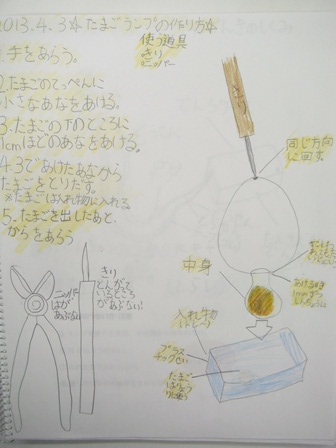 2013.4.3 たまごランプの作り方
使う道具
きり
ニッパー
1.手をあらう。
2.たまごのてっぺんに
小さなあなをあける。
3.たまごの下のところに
1cmほどのあなをあける。
4.3であけたあなから
たまごをとりだす。
※たまごは入れ物に入れる
5.たまごを出したあと、
からをあらう
きり
同じ方向
に回す
中身
入れ物
プラス
チックせい
たまご
ニッパー
はが
あぶない
きり
とんがって
いるところ
があぶない!